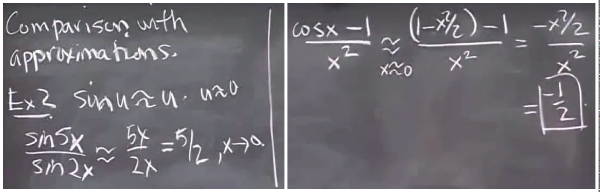 Comparison with
approximations.
Ex2 sin u ≈ u . u≈0
sin5x/sin2x ≈ 5x/2x = 5/2, x→0.
cosx-1/x² ≈ (x≈0) (1-x²/2)-1/x² = -x²/2/x²
= -1/2